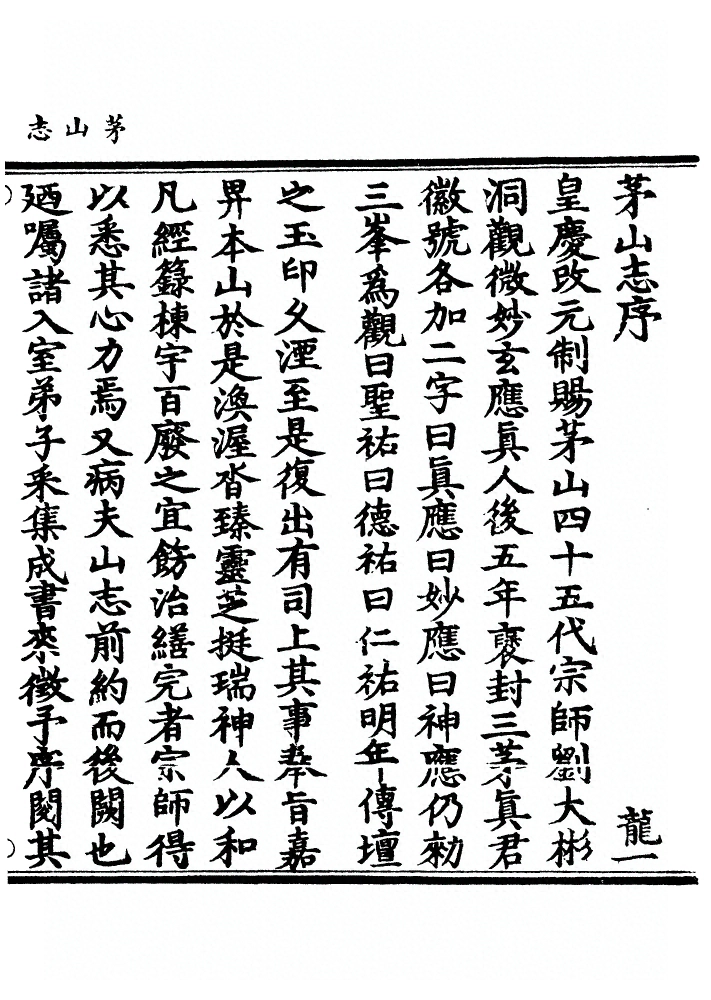 茅山志
茅山志序
龍一
皇慶改元制賜茅山四十五代宗師劉大彬
洞觀微妙玄應眞人後五年褒封三茅眞君
徽號各加二字曰眞應曰妙應曰神應仍勑
三峯爲觀曰聖祐曰德祐曰仁祐明年傳壇
之玉印久湮至是復出有司上其事奉旨嘉
畀本山於是渙渥沓臻靈芝挺瑞神人以和
凡經籙棟宇百廢之宜飭治繕完者宗師得
以悉其心力焉又病夫山志前約而後闕也
廼囑諸入室弟子采集成書來徵予序閱其